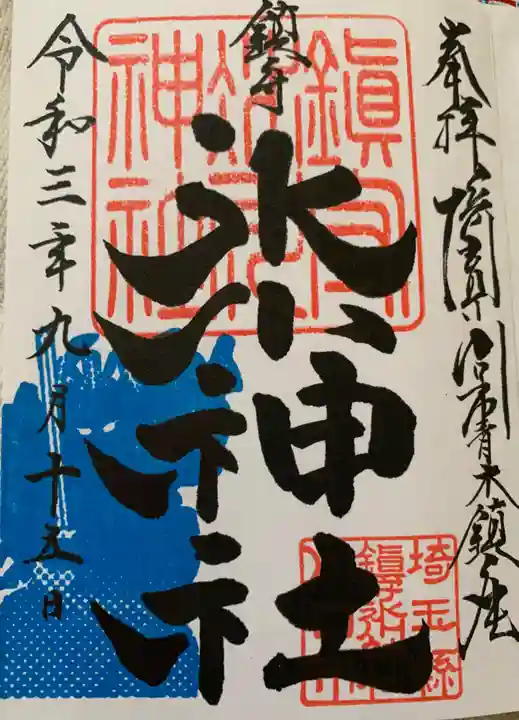 奉拝 埼玉県川口市青木鎮座
鎮守
氷川神社
令和三年九月十五日
鎮守氷川神社
埼玉縣